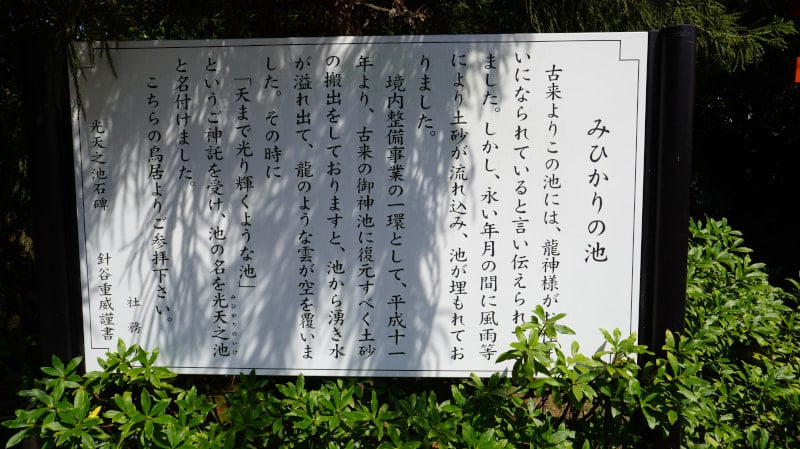 みひかりの池
古来よりこの池には、龍神様が
いになられていると言い伝えられ
ました。しかし、永い年月の間に風雨等
により土砂が流れ込み、池が埋もれてお
りました。
境内整備事業の一環として、平成十一
年より、古来の御神池に復元すべく土砂
の搬出をしておりますと、池から湧き水
が溢れ出て、龍のような雲が空を覆いま
した。その時に
「天まで光り輝くような池」
というご神託を受け、池の名を光天之池
みひかりのいけ
と名付けました。
こちらの鳥居よりご参拝下さい。
社務
光天之池石碑 針谷重威謹書